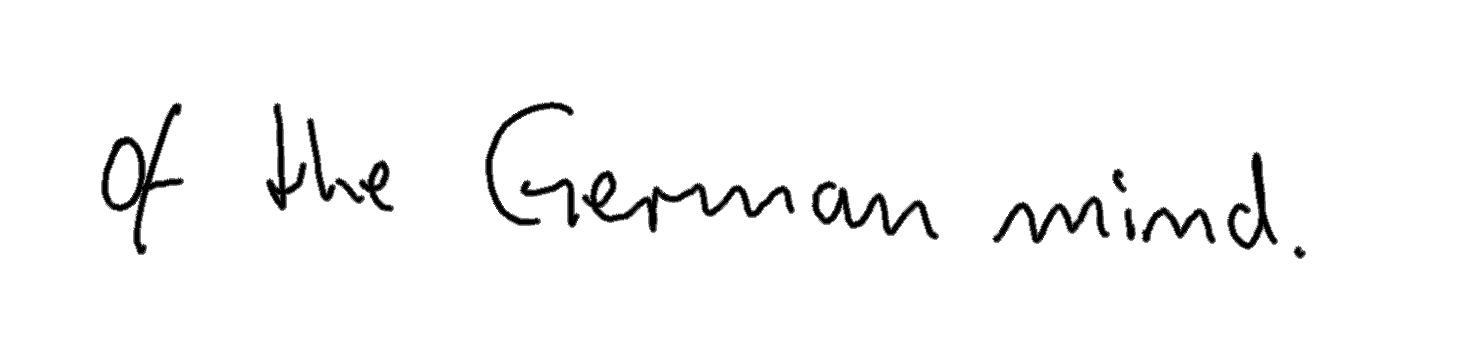 of the German mind.